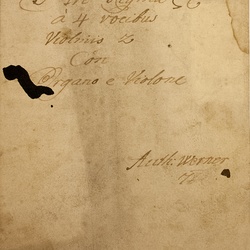 Regina
a 4 vocibus
Violinis 2
Con
Organo e Violone
Auth: Werner